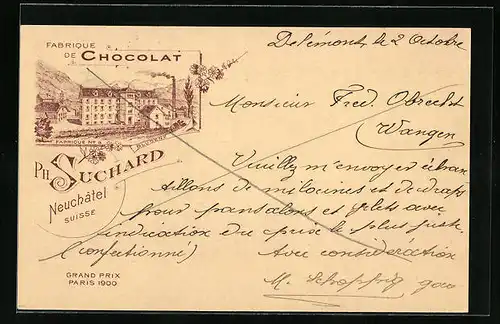 FABRIQUE
DE CHOCOLAT
FABRIQUE No 5
PH. SUCHARD
Neuchâtel
SUISSE
GRAND PRIX
PARIS 1900
Delémont, le 2 Octobre
Monsieur Fred. Obrecht
Wangen
Veuillez m'envoyer échan
tillons de milaines et de draps
pour pantalons et gilets avec
indication du prix le plus juste
(confectionné) Avec considération
M.